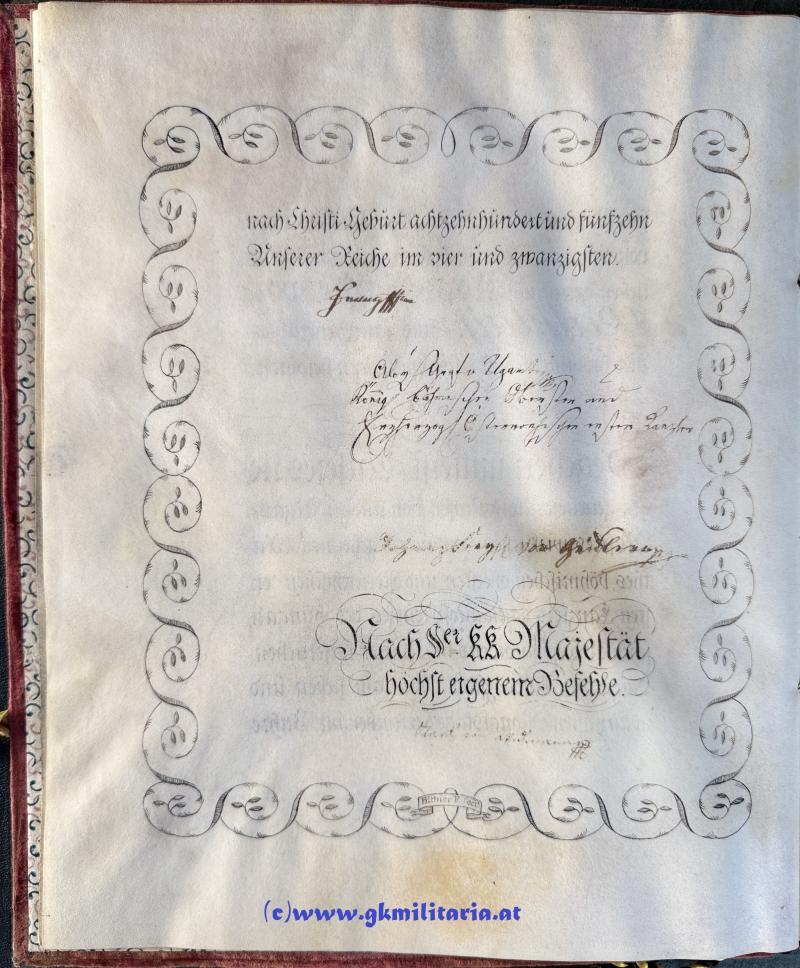 nach Christi Gebürt achtzehnhündert und fünfzehn
Ünserer Reiche im vier und zwanzigsten.
Franz
Graf v Ugarte
König böhmischer Oberster und
Erzherzogl Österreichischer erster Kanzler
von
Nach Sr. KK Majestät
höchst eigenem Befehle.
(c)www.gkmilitaria.at